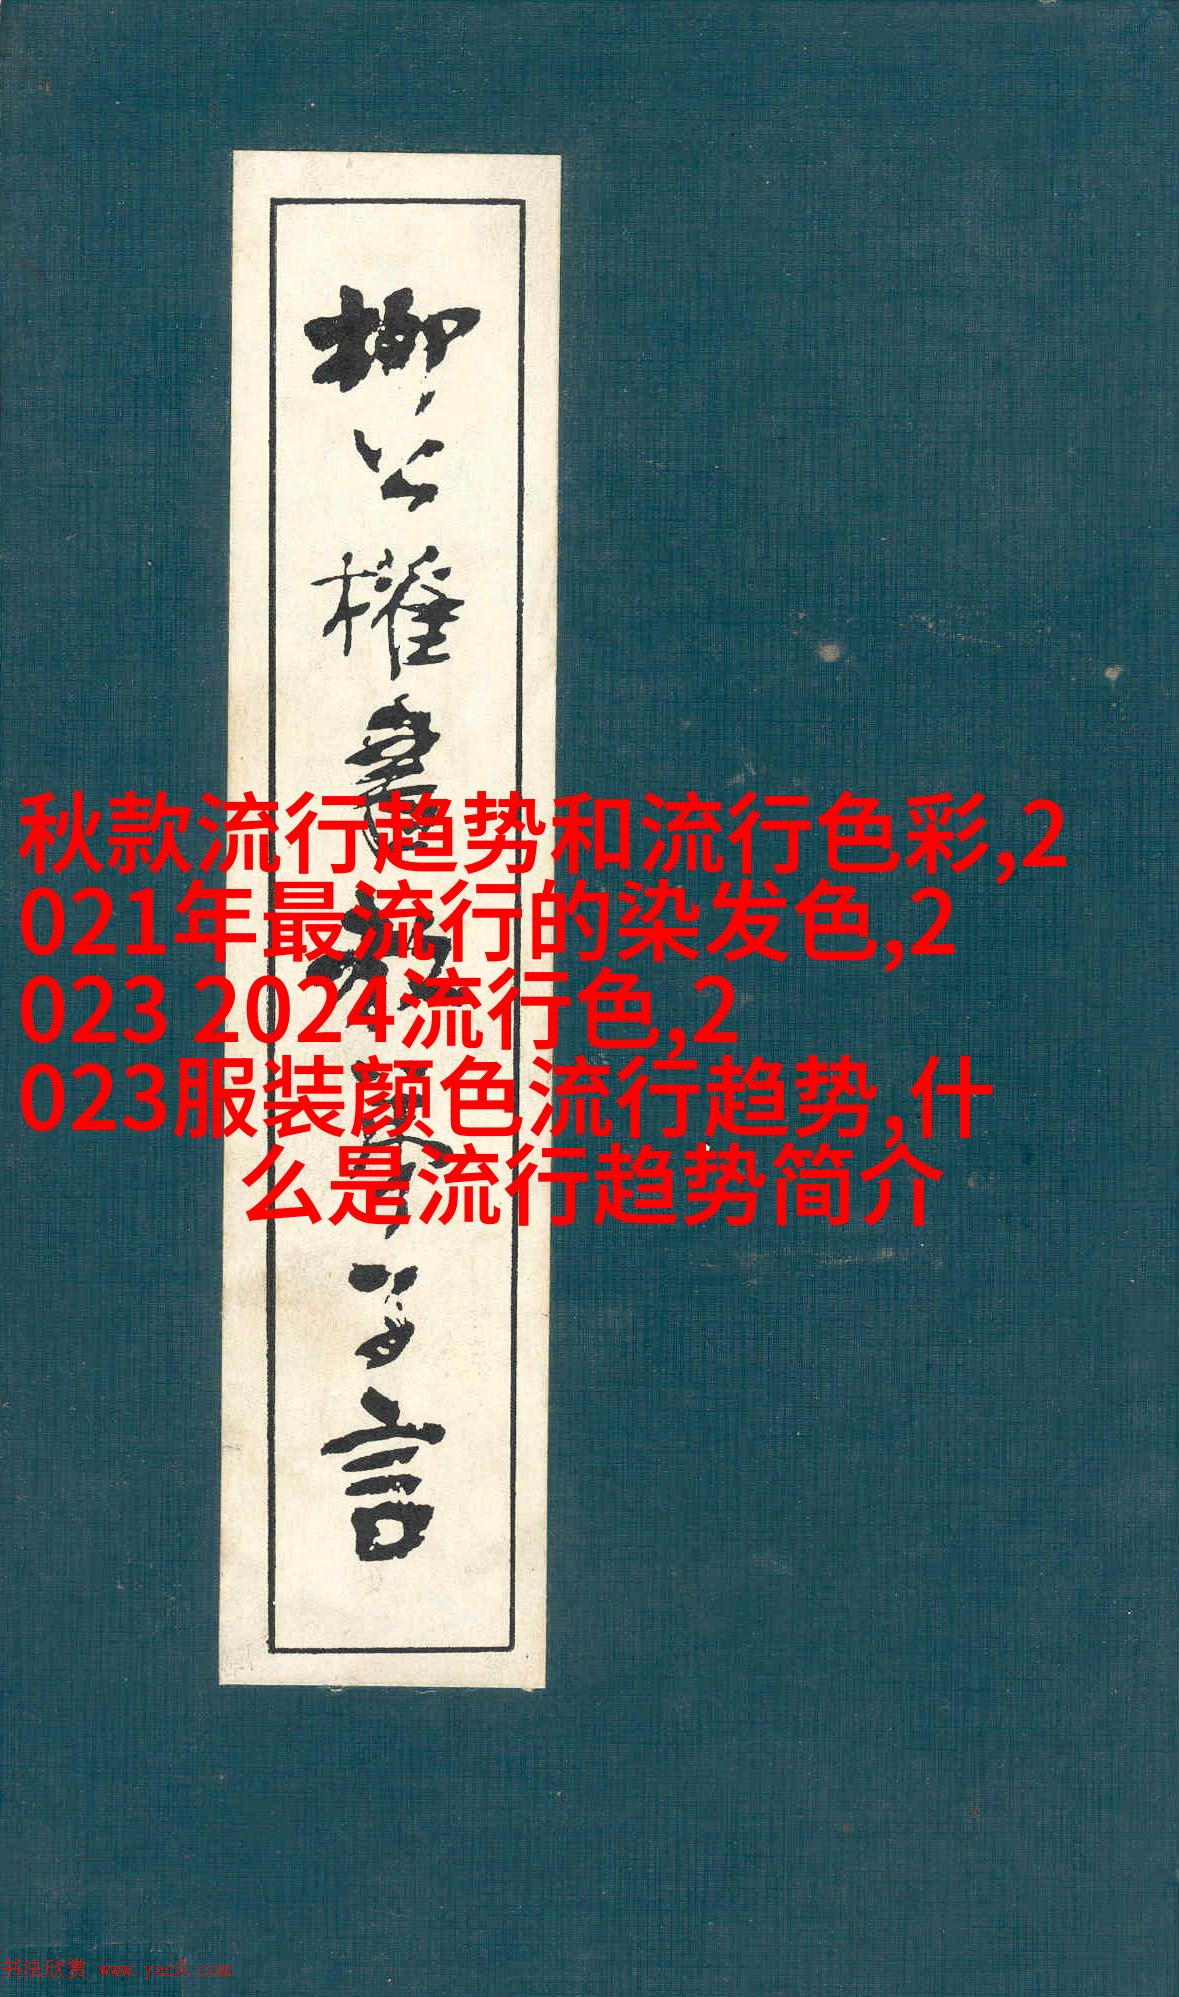 柳公權書
言
秋款流行趋势和流行色彩,2
021年最流行的染发色,2
023 2024流行色,2
023服装颜色流行趋势,什
么是流行趋势简介
书法欣赏 www.yac8.com